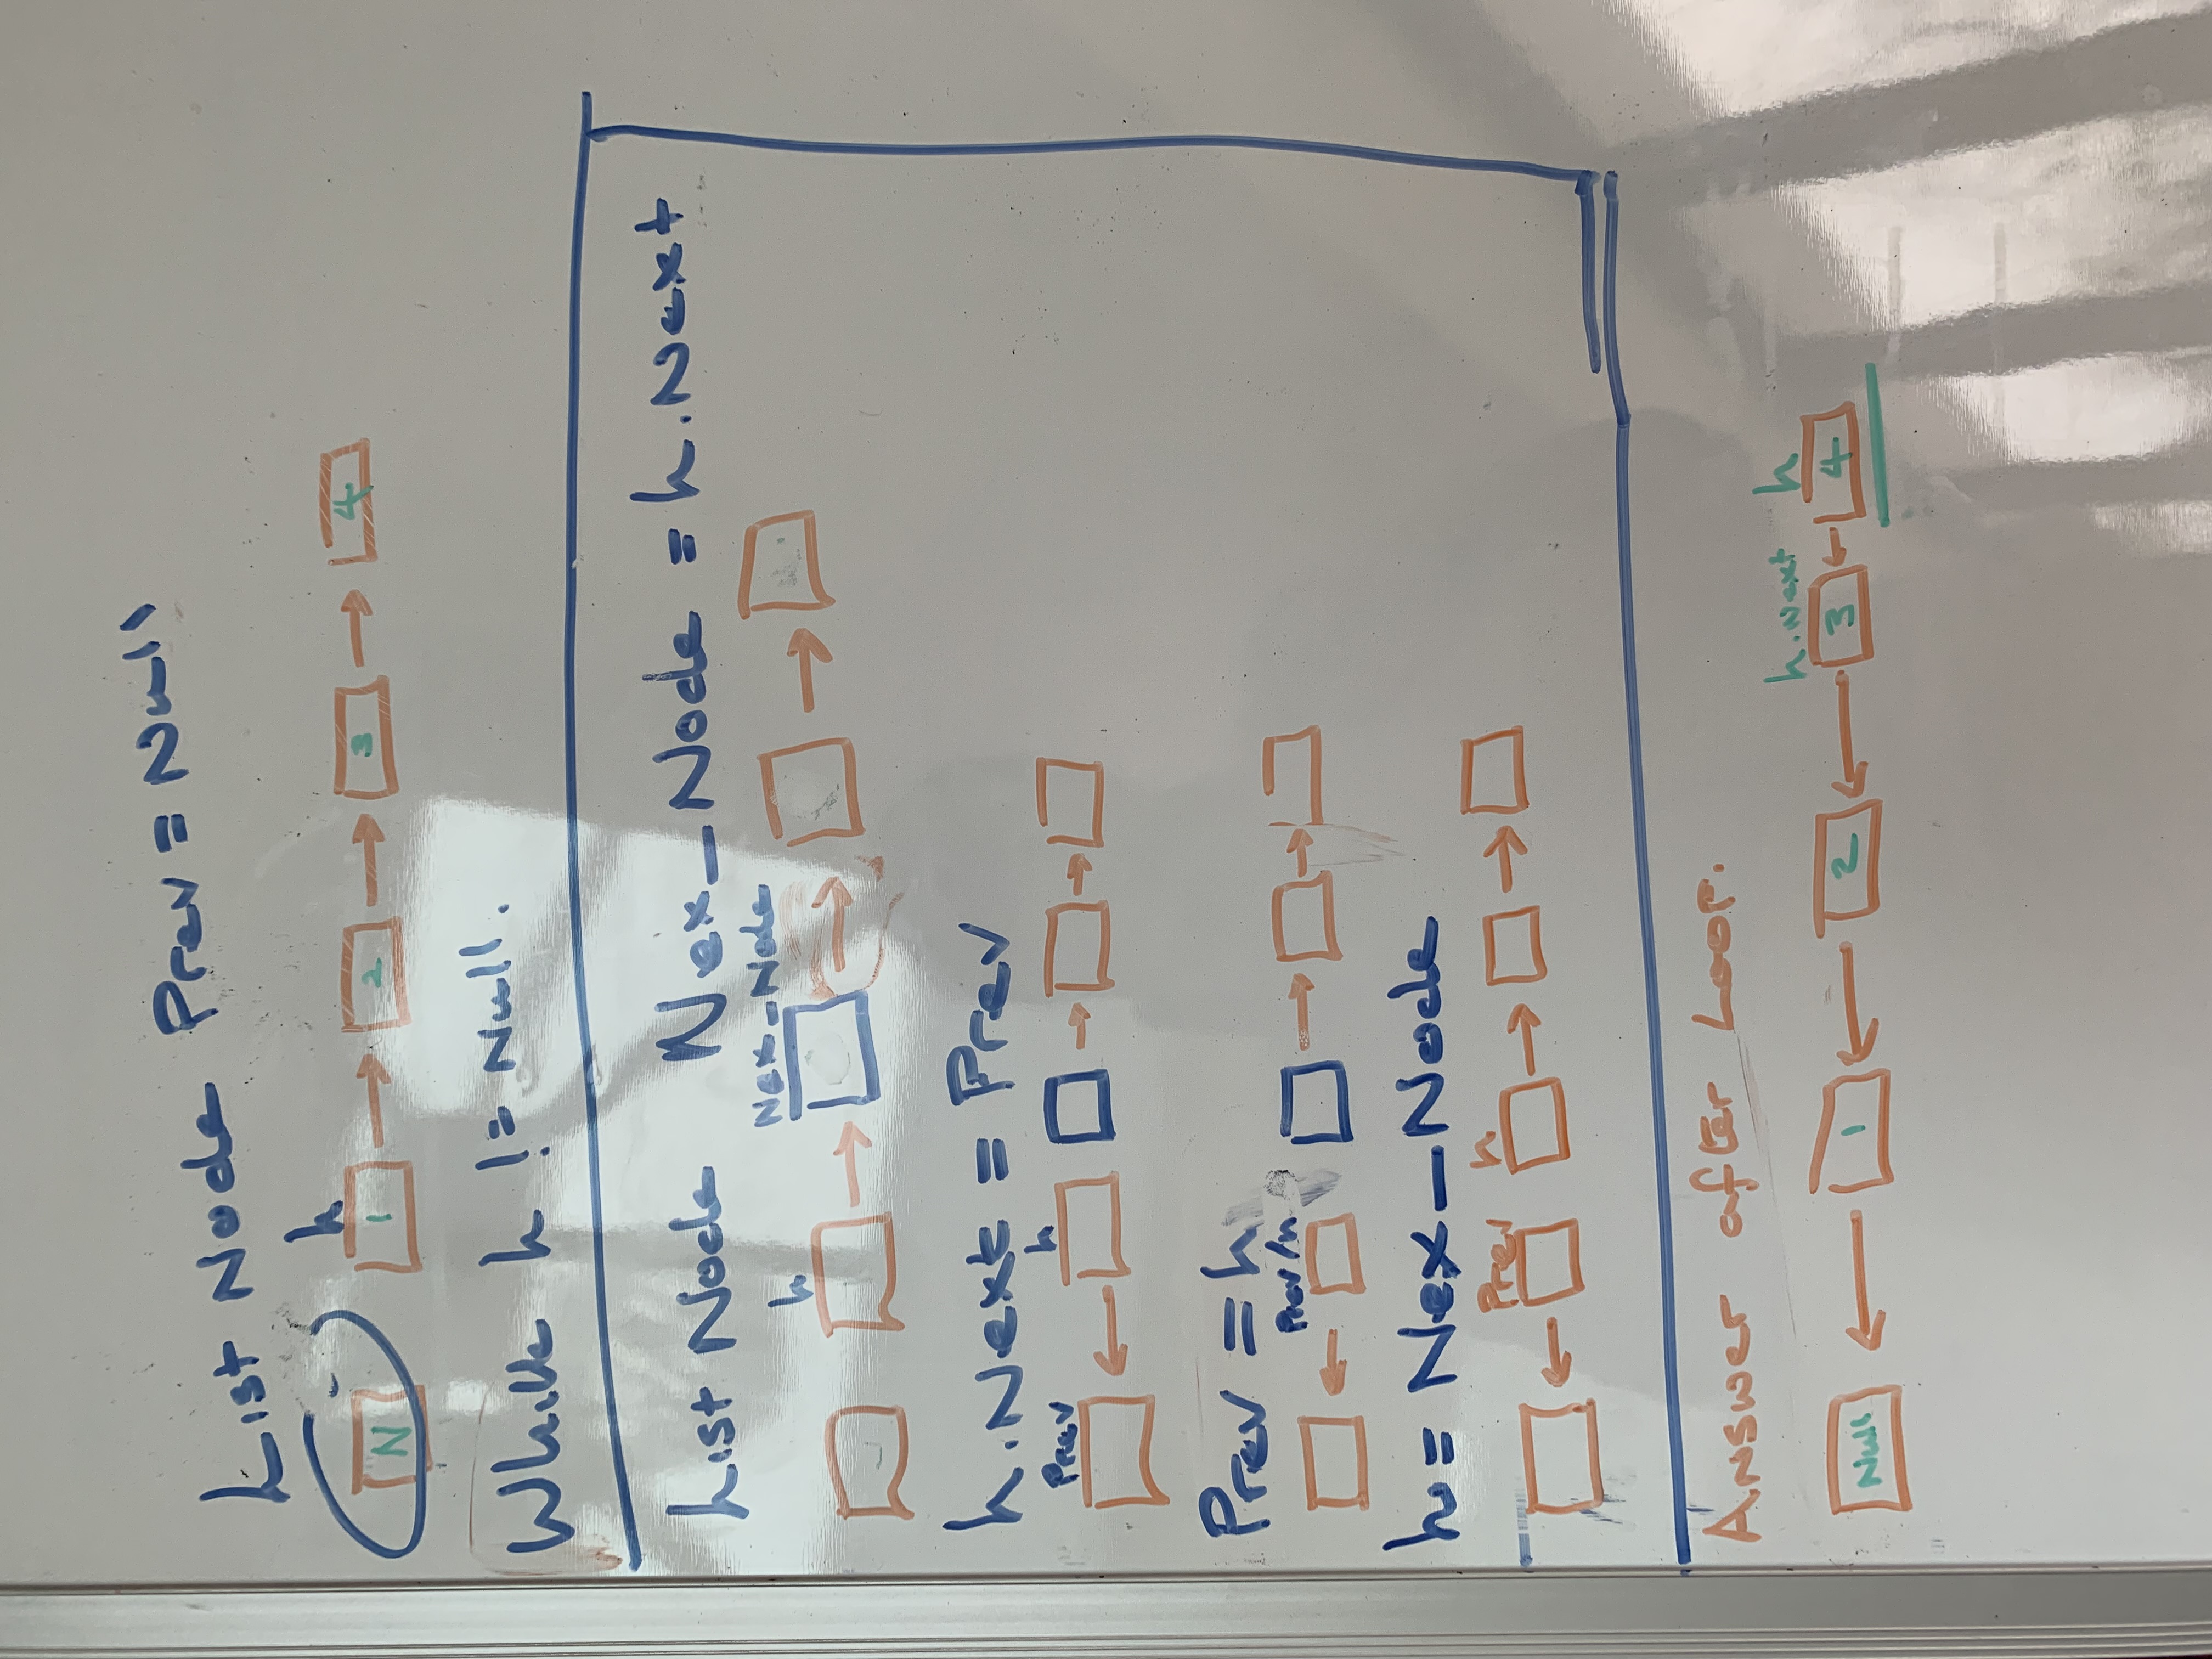 List Node Prev = Null
h
N 1 2 3 4
While h != Null.
List Node Nex_Node = h.Next
h Nex_Node
h.Next = Prev
Prev h
Prev = h
Prev/h
h = Nex_Node
Prev h
Answer after Loop.
h.Next h
Null 1 2 3 4